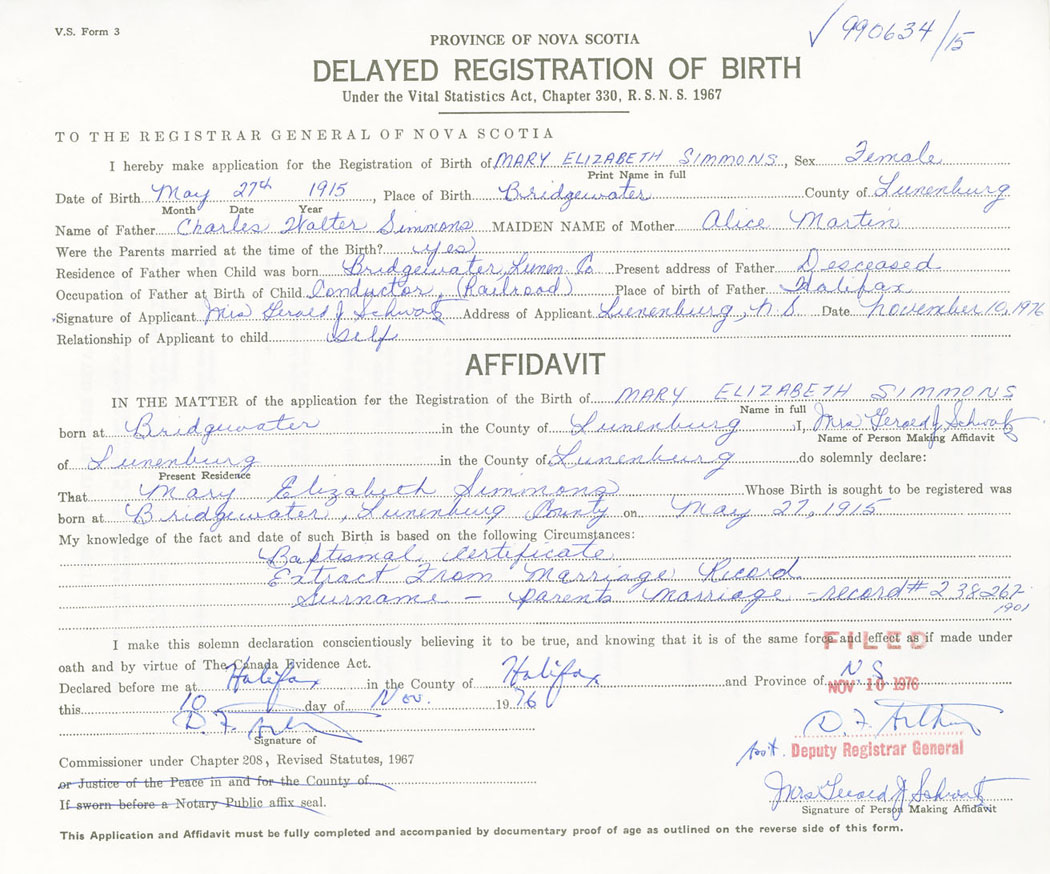 V.S. Form 3
√ 990634/15
PROVINCE OF NOVA SCOTIA
DELAYED REGISTRATION OF BIRTH
Under the Vital Statistics Act, Chapter 330, R. S. N. S. 1967
TO THE REGISTRAR GENERAL OF NOVA SCOTIA
I hereby make application for the Registration of Birth of MARY ELIZABETH SIMMONS, Sex Female
Print Name in full
Date of Birth May 27th 1915, Place of Birth Bridgewater County of Lunenburg
Month Date Year
Name of Father Charles Walter Simmons MAIDEN NAME of Mother Alice Martin
Were the Parents married at the time of the Birth? (yes)
Residence of Father when Child was born Bridgewater, Lunen Co Present address of Father Desceased
Occupation of Father at Birth of Child Conductor, (Railroad) Place of birth of Father Halifax
Signature of Applicant Mrs Gerald J Schwartz Address of Applicant Lunenburg, N S Date November 10, 1976
Relationship of Applicant to child self
AFFIDAVIT
IN THE MATTER of the application for the Registration of the Birth of MARY ELIZABETH SIMMONS
Name in full
born at Bridgewater in the County of Lunenburg I, Mrs Gerald J. Schwartz
Name of Person Making Affidavit
of Lunenburg in the County of Lunenburg do solemnly declare:
Present Residence
That Mary Elizabeth Simmons Whose Birth is sought to be registered was
born at Bridgewater, Lunenburg County on May 27, 1915
My knowledge of the fact and date of such Birth is based on the following Circumstances:
Baptismal Certificate
Extract From Marriage Record
Surname - parents marriage - record # 238267
1901
I make this solemn declaration conscientiously believing it to be true, and knowing that it is of the same force and effect as if made under
FILED
oath and by virtue of The Canada Evidence Act.
Declared before me at Halifax in the County of Halifax and Province of N S
NOV 10 1976
this 10 day of Nov. 1976
D. F. Arthur
Signature of
D. F. Arthur
Asst. Deputy Registrar General
Commissioner under Chapter 208, Revised Statutes, 1967
or Justice of the Peace in and for the County of
If sworn before a Notary Public affix seal.
Mrs Gerald J Schwartz
Signature of Person Making Affidavit
This Application and Affidavit must be fully completed and accompanied by documentary proof of age as outlined on the reverse side of this form.